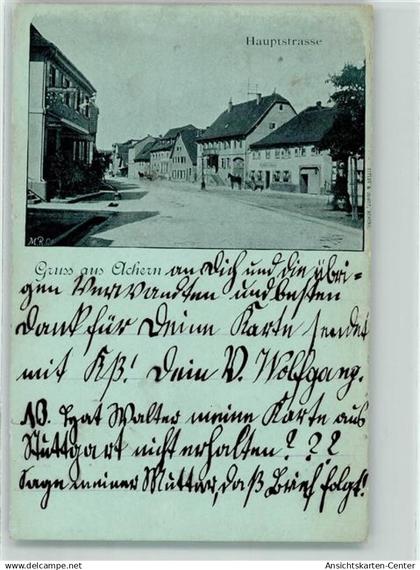 Hauptstrasse
M.R.
Gruss aus Achern an Dich und die übri-
gen Verwandten und besten
Dank für Deine Karte sendet
mit Kß! Dein V. Wolfgang.
NB. Hat Walter meine Karte aus
Stuttgart nicht erhalten? ??
Sage meiner Mutter, daß Brief folgt!
oldthing
Ansichtskarten-Center